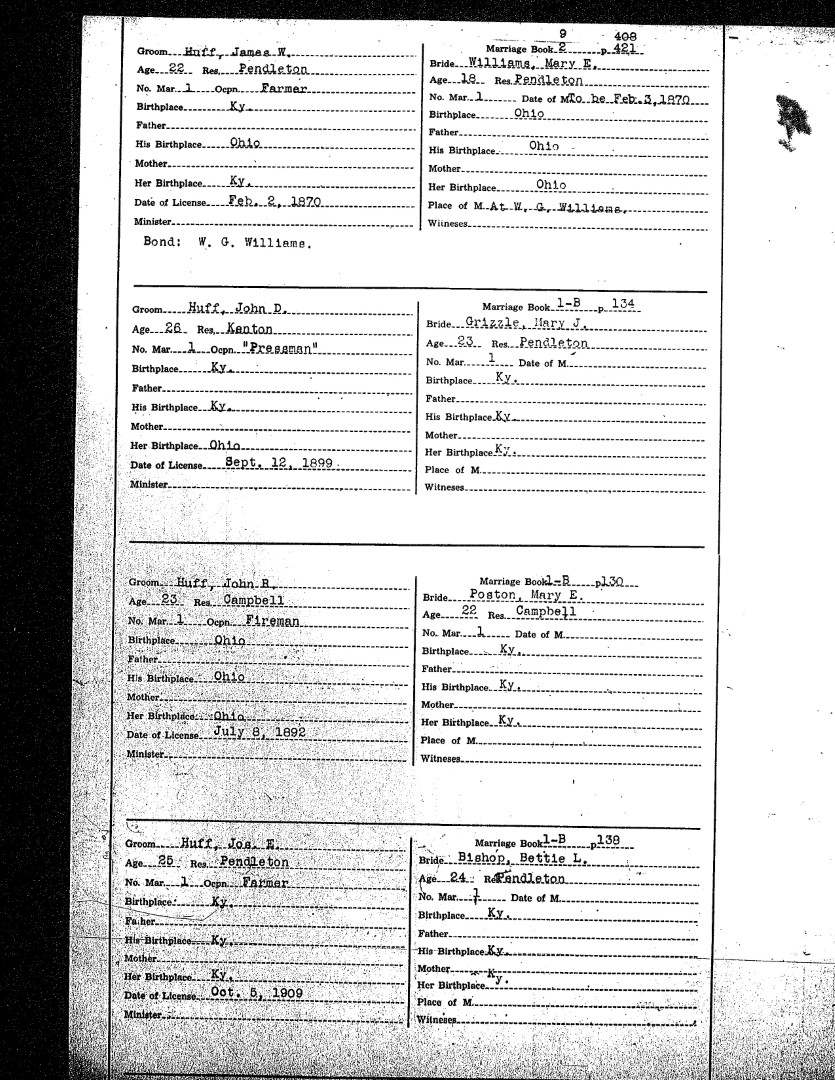 9 408
Groom Huff, James W.
Age 22 Res. Pendleton
No. Mar. 1 Ocpn. Farmer
Birthplace Ky.
Father
His Birthplace Ohio
Mother
Her Birthplace Ky.
Date of License Feb. 2, 1870
Minister
Bond: W. G. Williams.
Marriage Book 2 p. 421
Bride Williams, Mary E.
Age 18 Res. Pendleton
No. Mar. 1 Date of M. To be Feb. 3, 1870
Birthplace Ohio
Father
His Birthplace Ohio
Mother
Her Birthplace Ohio
Place of M. At W. G. Williams.
Witneses
Groom Huff, John D.
Age 26 Res. Kenton
No. Mar. 1 Ocpn. "Pressman"
Birthplace Ky.
Father
His Birthplace Ky.
Mother
Her Birthplace Ohio
Date of License Sept. 12, 1899.
Minister
Marriage Book 1-B p. 134
Bride Grizzle, Mary J.
Age 23 Res. Pendleton
No. Mar. 1 Date of M.
Birthplace Ky.
Father
His Birthplace Ky.
Mother
Her Birthplace Ky.
Place of M.
Witneses
Groom Huff, John R.
Age 23 Res. Campbell
No. Mar. 1 Ocpn. Fireman
Birthplace Ohio
Father
His Birthplace Ohio
Mother
Her Birthplace Ohio
Date of License July 8, 1892
Minister
Marriage Book 1-B p130
Bride Poston, Mary E.
Age 22 Res. Campbell
No. Mar. 1 Date of M.
Birthplace Ky.
Father
His Birthplace Ky.
Mother
Her Birthplace Ky.
Place of M.
Witneses
Groom Huff, Jos. E.
Age 25 Res. Pendleton
No. Mar. 1 Ocpn. Farmer
Birthplace Ky.
Father
His Birthplace Ky.
Mother
Her Birthplace Ky.
Date of License Oct. 5, 1909
Minister
Marriage Book 1-B p138
Bride Bishop, Bettie L.
Age 24 Res. Pendleton
No. Mar. 1 Date of M.
Birthplace Ky.
Father
His Birthplace Ky.
Mother
Her Birthplace Ky.
Place of M.
Witneses